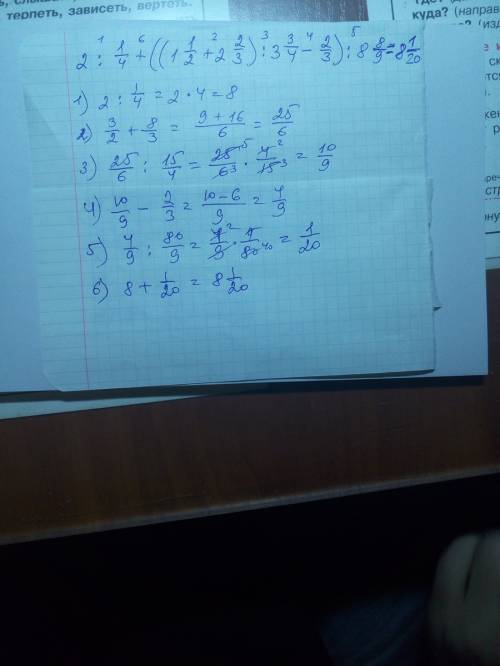 терпеть, зависеть, вертеть.
куда? (направ
2 : 1/4 + ((1 1/2 + 2 2/3) : 3 3/4 - 2/3) : 8 8/9 = 8 1/20
1) 2 : 1/4 = 2 · 4 = 8
2) 3/2 + 8/3 = (9 + 16)/6 = 25/6
3) 25/6 : 15/4 = 25/6 · 4/15 = 10/9
4) 10/9 - 2/3 = (10 - 6)/9 = 4/9
5) 4/9 : 80/9 = 4/9 · 9/80 = 1/20
6) 8 + 1/20 = 8 1/20